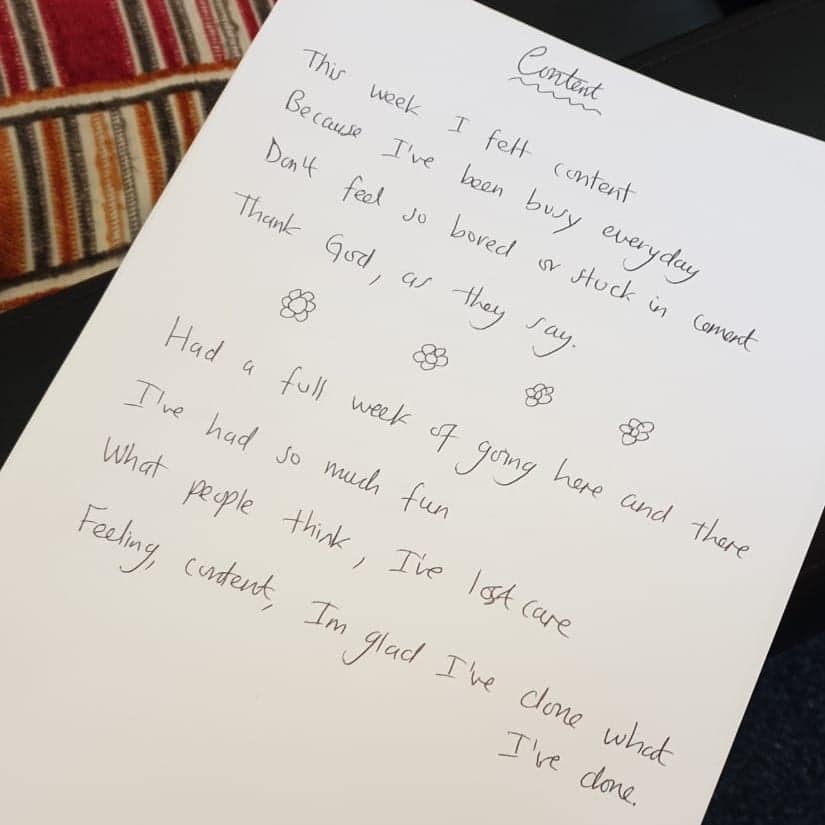 Content
This week I felt content
Because I've been busy everyday
Don't feel so bored or stuck in cement
Thank God, as they say.
Had a full week of going here and there
I've had so much fun
What people think, I've lost care
Feeling, content, Im glad I've done what
I've done.